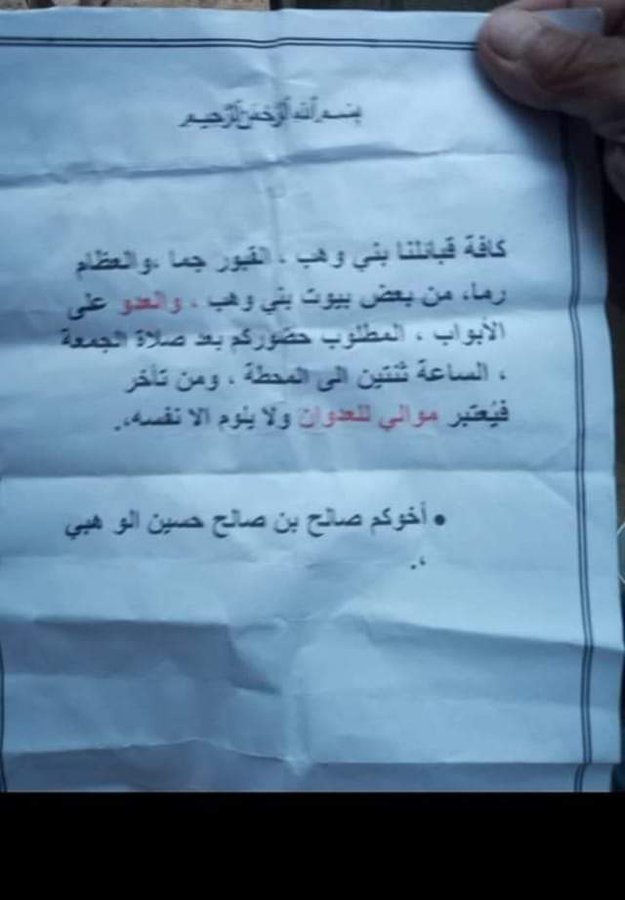 بسم الله الرحمن الرحيم
كافة قبائلنا بني وهب ، القبور جما ،والعظام
رما، من بعض بيوت بني وهب ، والعدو على
الأبواب ، المطلوب حضوركم بعد صلاة الجمعة
، الساعة ثنتين الى المحطة ، ومن تأخر
فيُعتبر موالي للعدوان ولا يلوم الا نفسه،.
• أخوكم صالح بن صالح حسين الو هبي
،.